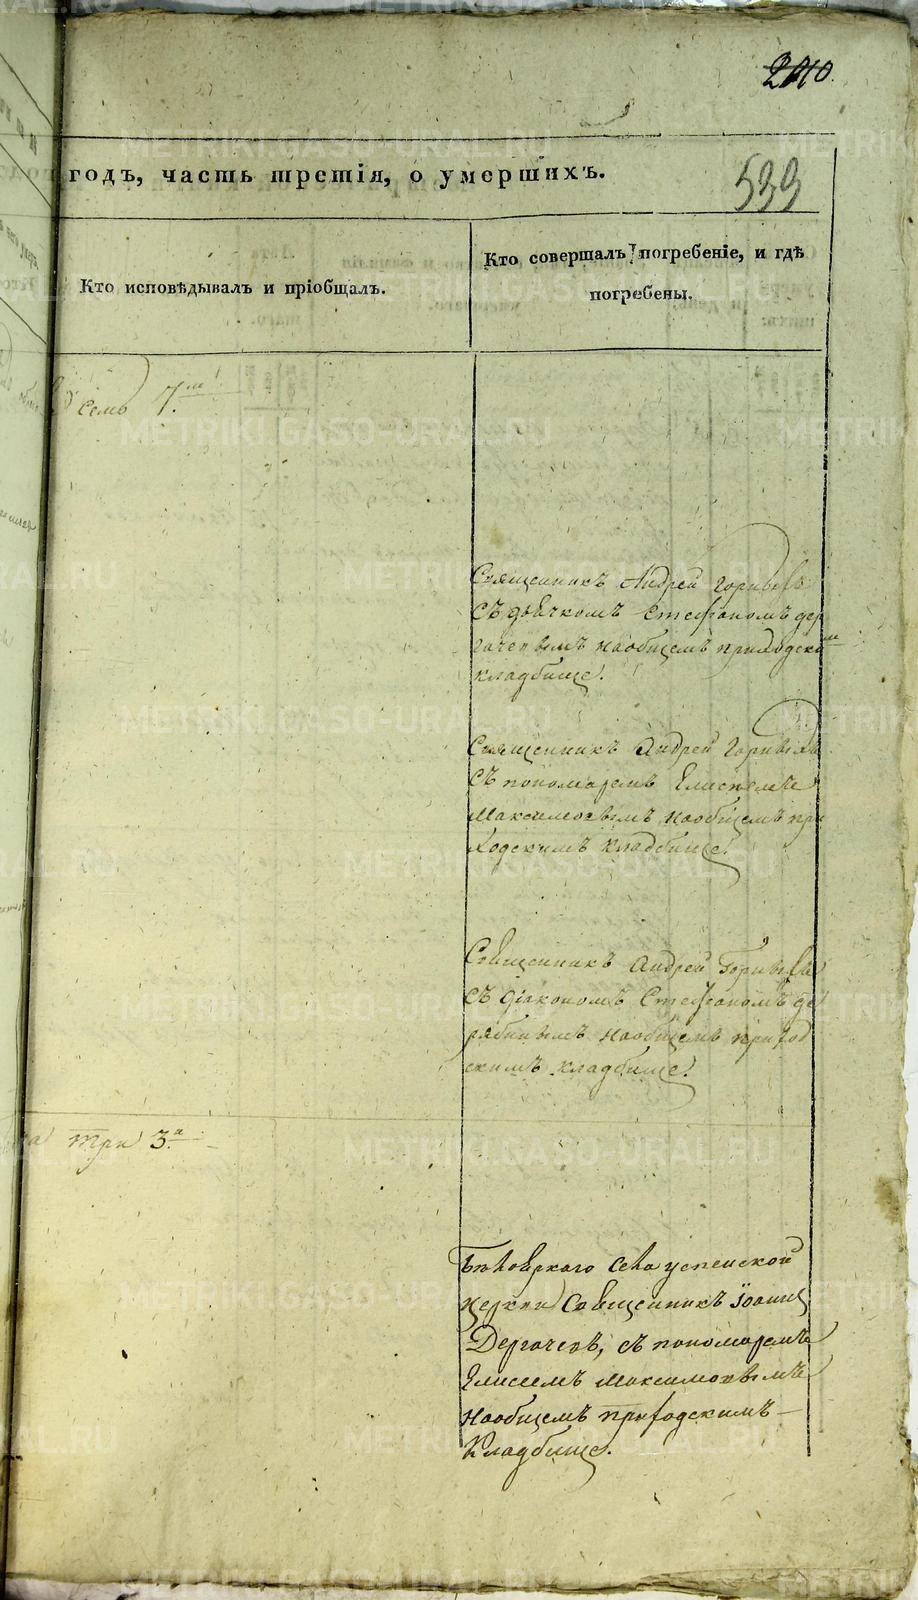 210.
годъ, часть третія, о умершихъ.
533
Кто исповѣдывалъ и пріобщалъ.
Кто совершалъ погребеніе, и гдѣ
погребены.
семь 7.
Священникъ Андрей
Съ дьячкомъ Стефаномъ дер
гачевымъ наобщемъ приходском
кладбище.
Священникъ Андрей
Съ пономаремъ Елисеемъ
Максимовымъ наобщемъ при
ходскимъ кладбище.
Священникъ Андрей
съ діакономъ Стефаномъ де
рябинымъ наобщемъ приход
скимъ кладбище.
три 3.
села успенской
церкви Священникъ Іоаннъ
Дергачевъ, съ пономаремъ
Елисеемъ Максимовымъ
наобщемъ приходскимъ
Кладбище.
METRIKI.GASO-URAL.RU